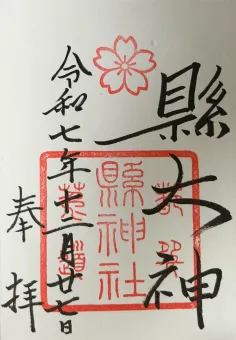 縣大神
令和七年十二月廿七日
奉拝
縣神社
菟道